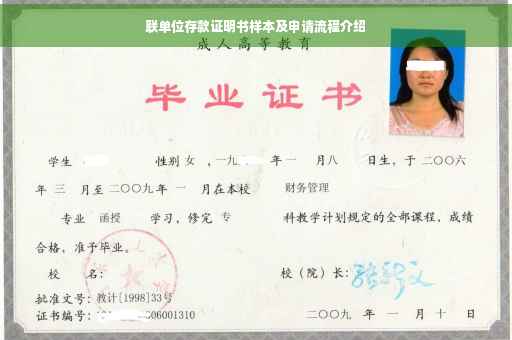 联单位存款证明书样本及申请流程介绍
成人高等教育
毕业证书
学生 性别 女 ，一九 年一 月八 日生，于二〇〇六
年 三 月至二〇〇九年 一 月在本校 财务管理
专业 函授 学习，修完 专 科教学计划规定的全部课程，成绩
合格，准予毕业。
校 名： 校（院）长：
批准文号：教计[1998]33号
证书编号： 06001310 二〇〇九 年 一 月 十 日